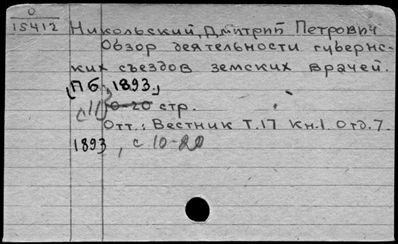 0
15412
Никольский, Дмитрий Петрович
Обзор деятельности губернс-
ких съездов земских врачей.
Пб, 1893,
с 11) 0-20 стр.
Отт.: Вестник Т.17 Кн.1 Отд.7.
1893, с 10-20